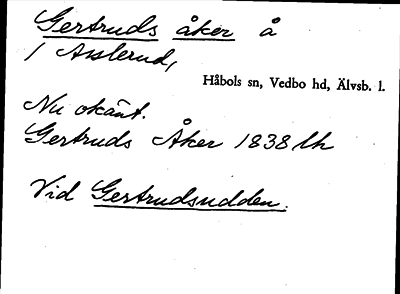 Gertruds åker å
/ Asslerud,
Håbols sn, Vedbo hd, Älvsb. l.
Nu okänt.
Gertruds Åker 1838 lh
Vid Gertrudsudden.